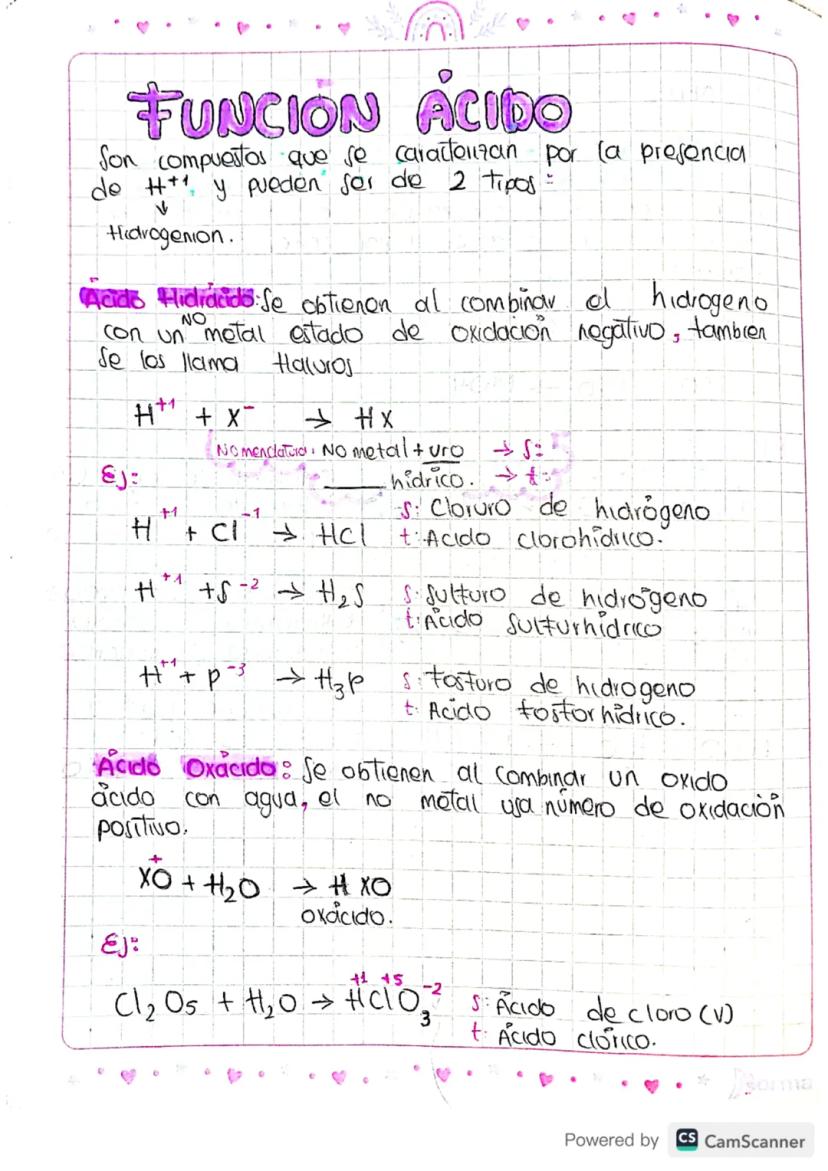 FUNCIÓN ÁCIDO
Son compuestos que se caracterizan por la presencia
de H⁺¹, y pueden ser de 2 tipos:
↓
Hidrogenion.
Ácido Hidrácido: Se obtienen al combinar el hidrogeno
con un NO metal estado de oxidación negativo, tambien
se los llama Haluros
H⁺¹ + X⁻ → HX
Nomenclatura: NO metal + uro → s:
Ej: ____ hídrico. → t:
H⁺¹ + Cl⁻¹ → HCl s: Cloruro de hidrógeno
t: Acido clorohídrico.
H⁺¹ + S⁻² → H₂S s: Sulfuro de hidrógeno
t: Ácido Sulfurhídrico
H⁺¹ + P⁻³ → H₃P s: fosfuro de hidrogeno
t: Acido fosforhídrico.
Ácido Oxácido: Se obtienen al combinar un oxido
ácido con agua, el no metal usa número de oxidación
positivo.
+
XO + H₂O → H XO
oxácido.
Ej:
+1 +5 -2
Cl₂O₅ + H₂O → HClO₃ s: Ácido de cloro (V)
t: Ácido clórico.
Norma
Powered by CS CamScanner